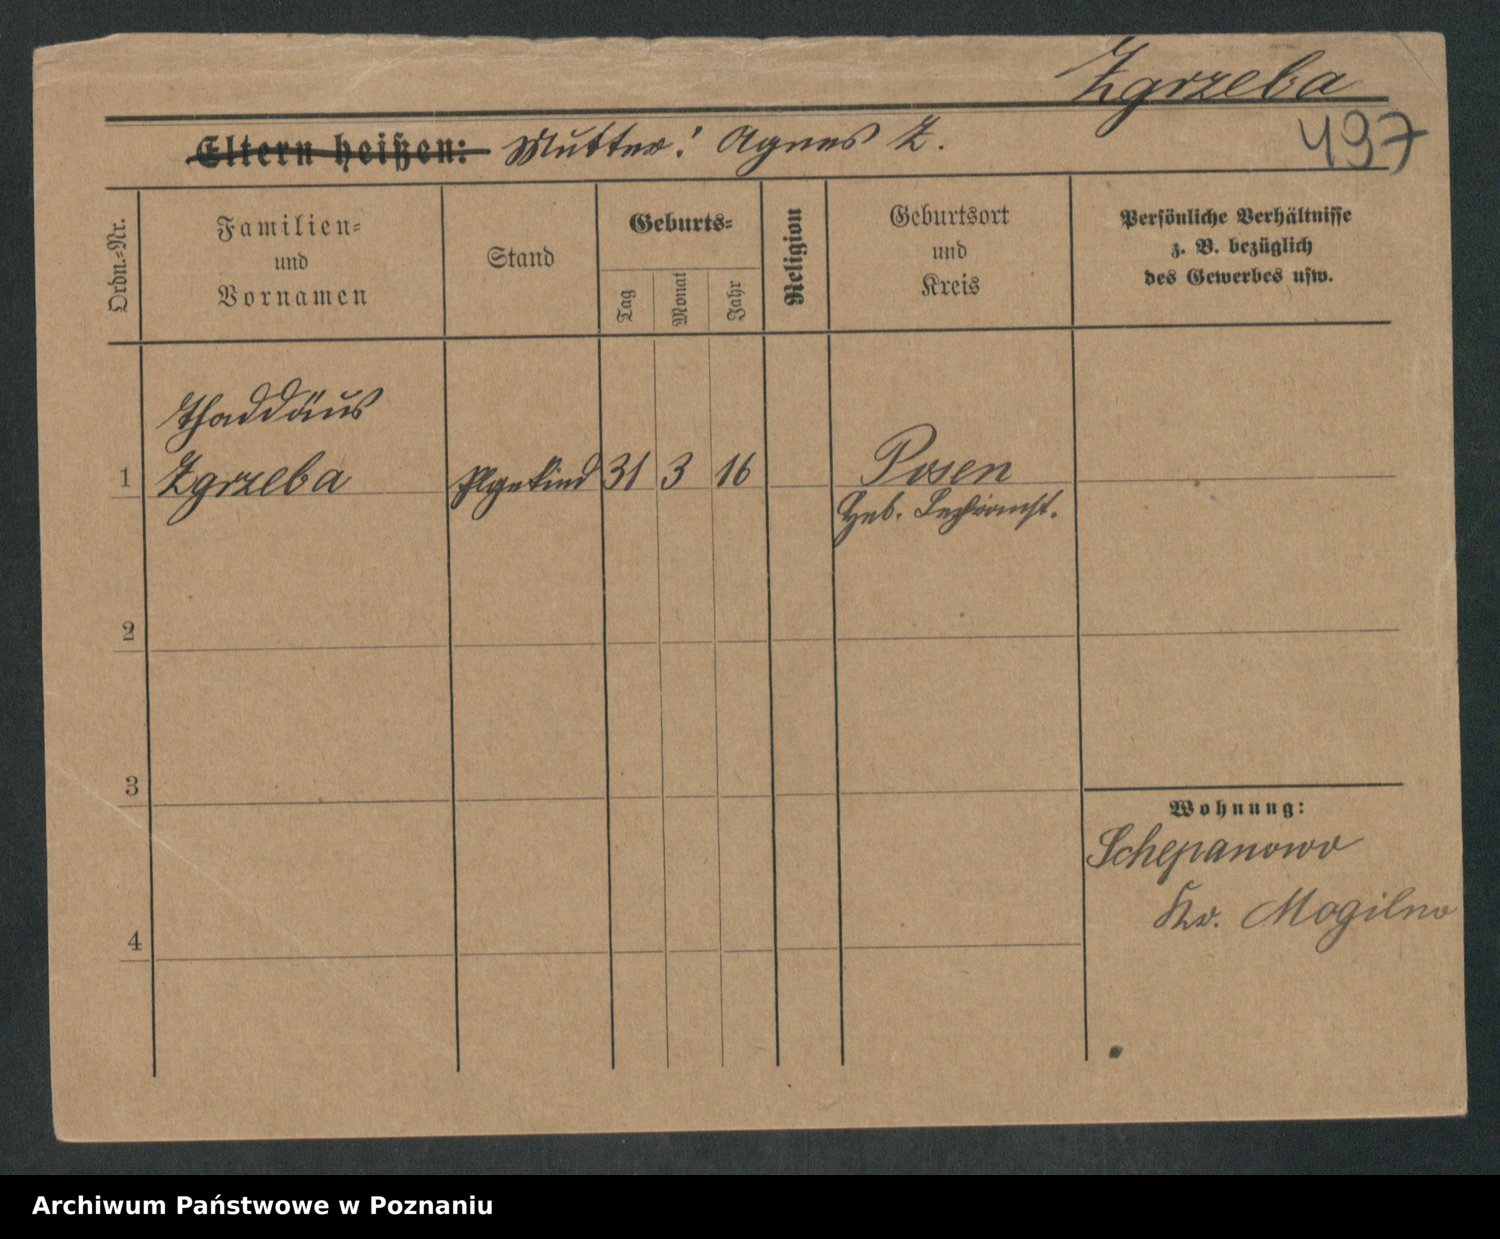 Zgrzeba
497
Eltern heißen: Mutter: Agnes Z.
Ordn.=Nr.
Familien=
und
Vornamen
Stand
Geburts=
Tag
Monat
Jahr
Religion
Geburtsort
und
Kreis
Persönliche Verhältnisse
z. B. bezüglich
des Gewerbes usw.
Thaddäus
1 Zgrzeba Pflgekind 31 3 16 Posen
Heb. Lehranst.
2
3
Wohnung:
Schepanowo
Kr. Mogilno
4
Archiwum Państwowe w Poznaniu